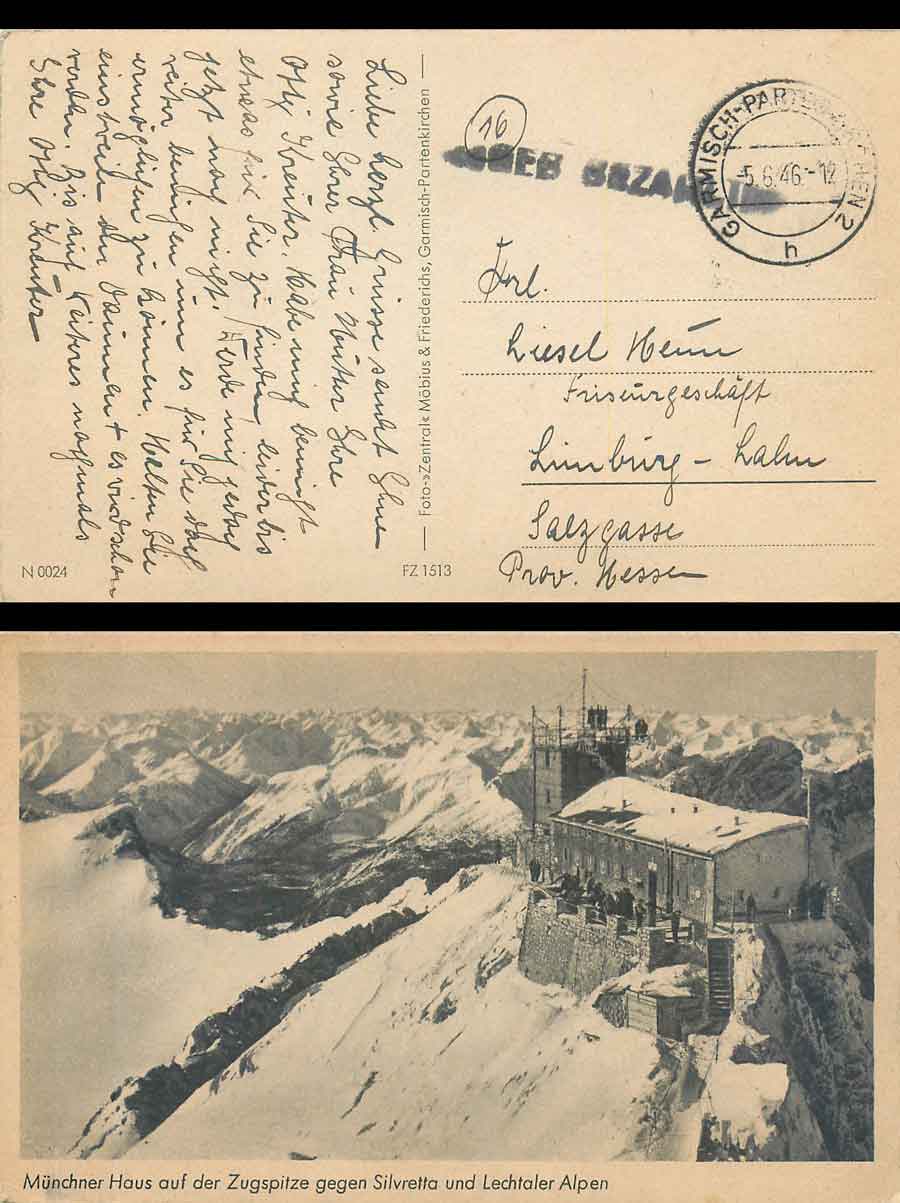 Liebe herzl. Grüsse sendet Ihnen
sowie Ihrer Frau Mutter Ihre
Otty Kräuter. Habe mich bemüht
etwas für Sie zu finden, leider bis
jetzt noch nicht. Werde mich jedoch
weiter bemühen um es für Sie doch
ermöglichen zu können. Halten Sie
einstweilen den Daumen + es wird schon
werden. Bis auf Weiteres nochmals
Ihre Otty Kräuter
N 0024
Foto-»Zentral« Möbius & Friederichs, Garmisch-Partenkirchen
FZ 1513
16
GEB BEZAHLT
GARMISCH-PARTENKIRCHEN 2
-5.6.46.-12
h
Frl.
Liesel Heun
Friseurgeschäft
Limburg - Lahn
Salzgasse
Prov. Hessen
Münchner Haus auf der Zugspitze gegen Silvretta und Lechtaler Alpen